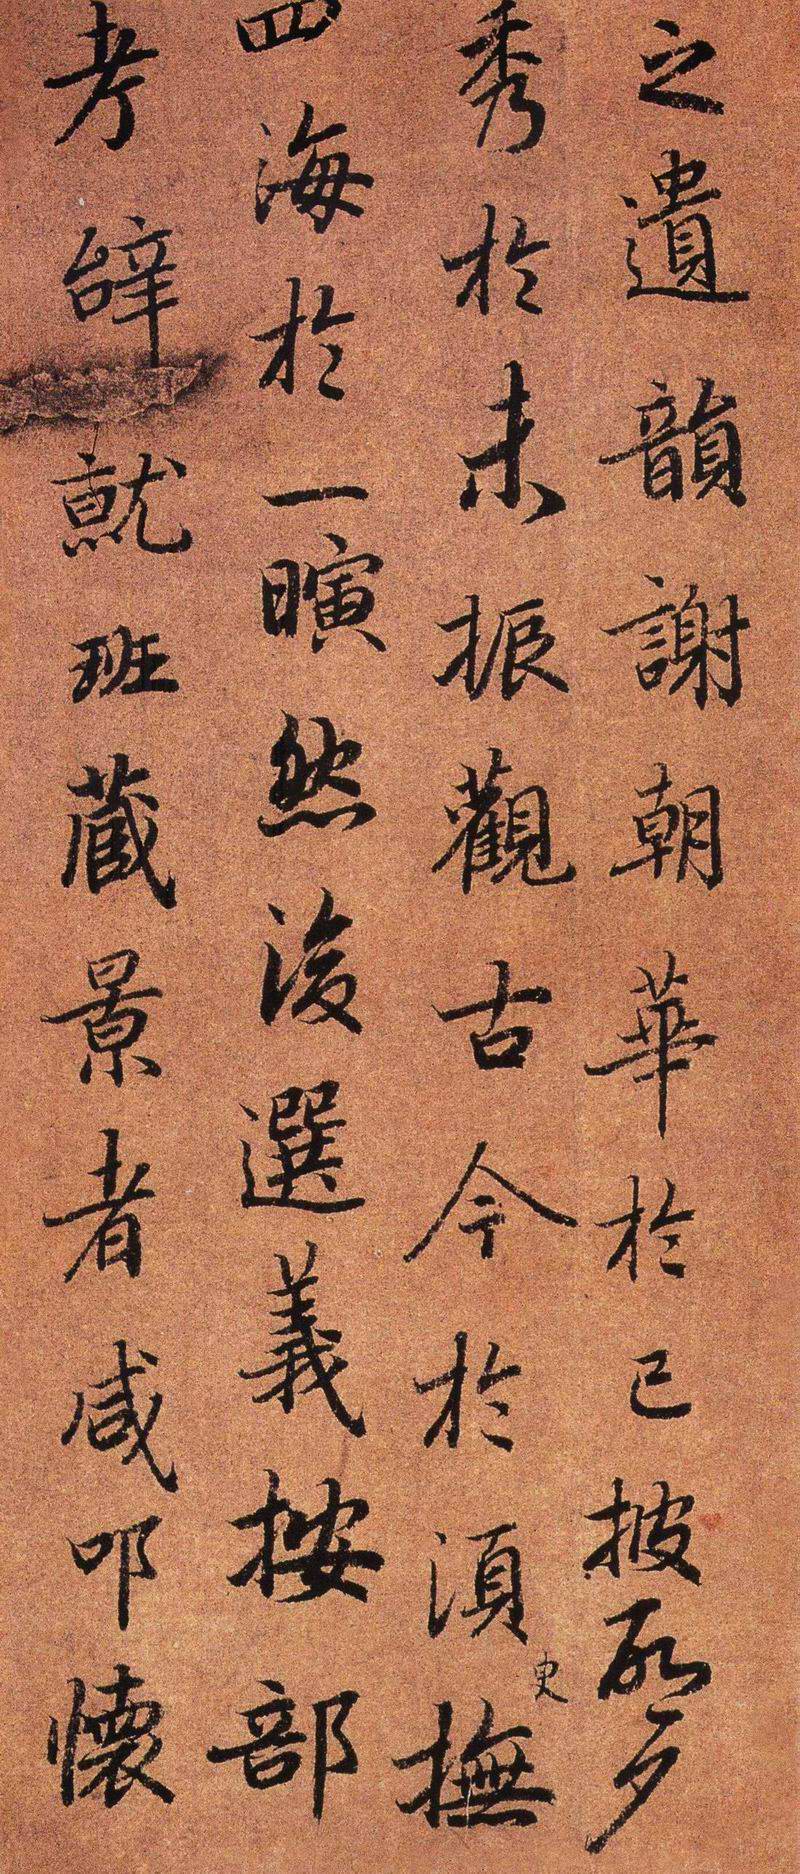 之遺韻謝朝華於已披啓夕
秀於未振觀古今於須史撫
四海於一瞚然後選義按部
考辤就班藏景者咸叩懷